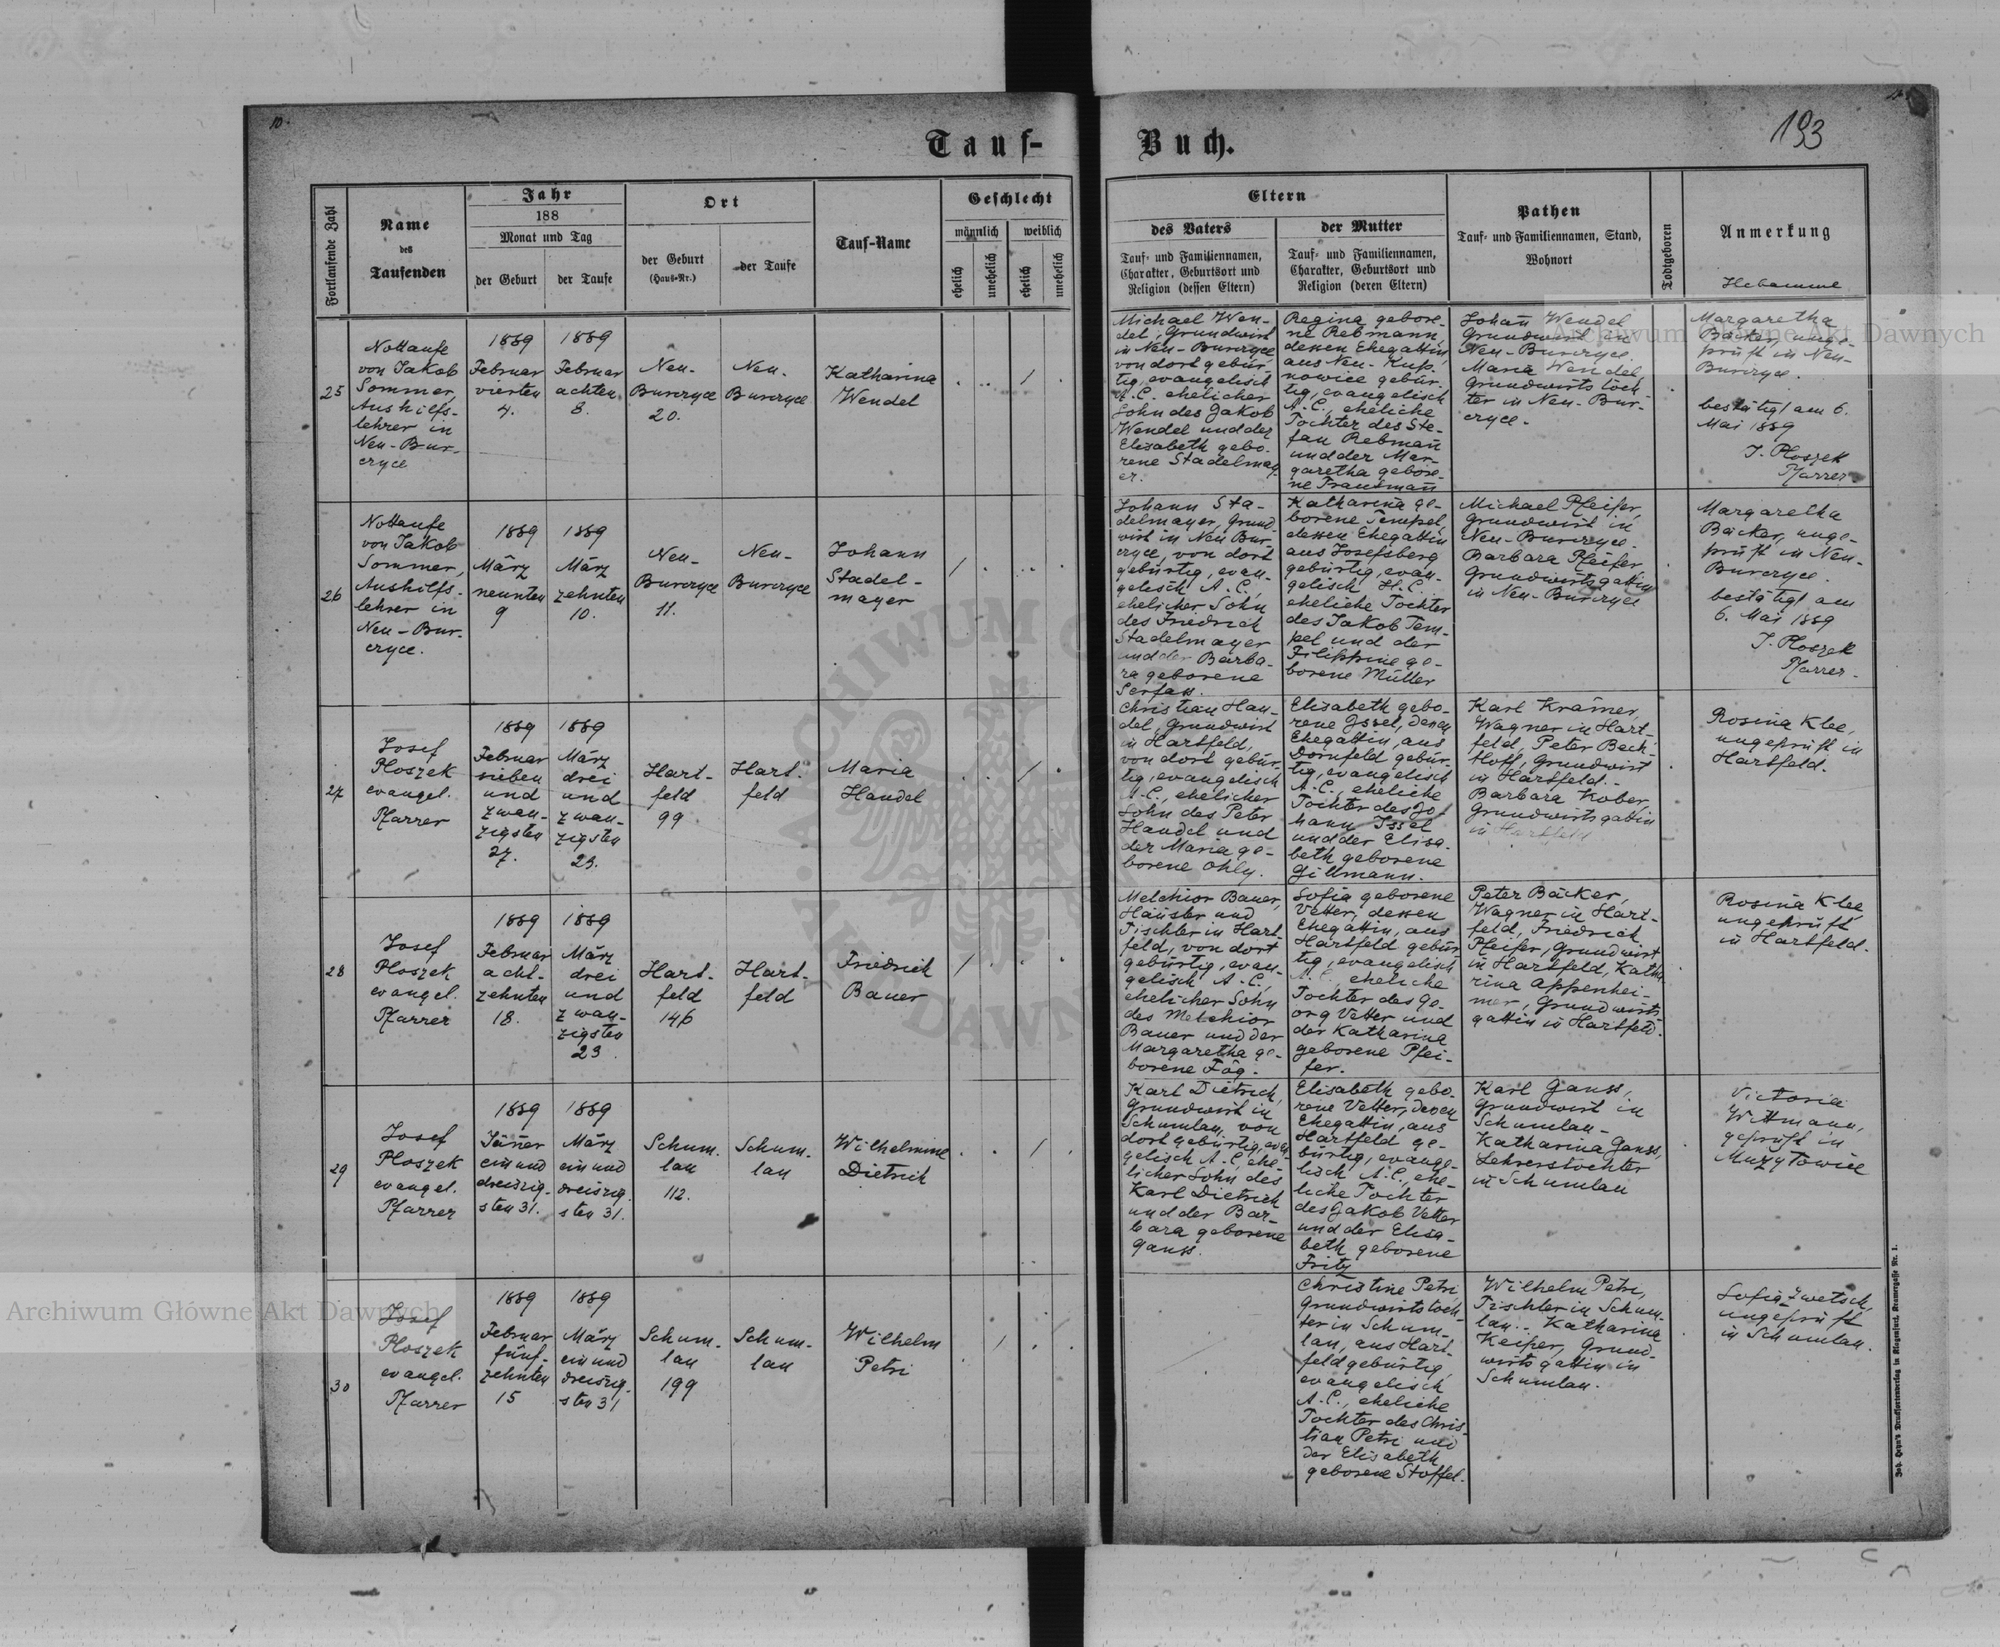 10.
193
Tauf-
Buch.
Fortlaufende Zahl
Name
des
Taufenden
Jahr
188
Monat und Tag
der Geburt
der Taufe
Ort
der Geburt
(Haus-Nr.)
der Taufe
Tauf-Name
Geschlecht
männlich
weiblich
ehelich
unehelich
ehelich
unehelich
Eltern
des Vaters
Tauf- und Familiennamen,
Charakter, Geburtsort und
Religion (dessen Eltern)
der Mutter
Tauf- und Familiennamen,
Charakter, Geburtsort und
Religion (deren Eltern)
Pathen
Tauf- und Familiennamen, Stand,
Wohnort
Todtgeboren
Anmerkung
Hebamme
25
Nottaufe
von Jakob
Sommer,
Aushilfs-
lehrer in
Neu-Bur-
czyce
1889
Februar
vierten
4.
1889
Februar
achten
8.
Neu-
Burczyce
20.
Neu-
Burczyce
Katharina
Wendel
Michael Wen-
del, Grundwirt
in Neu-Burczyce
von dort gebür-
tig, evangelisch
A.C. ehelicher
Sohn des Jakob
Wendel und der
Elisabeth gebo-
rene Stadelmay-
er.
Regina gebore-
ne Rebmann,
dessen Ehegattin
aus Neu-Kup-
nowice gebür-
tig, evangelisch
A.C., eheliche
Tochter des Ste-
fan Rebmann
und der Mar-
garetha gebore-
ne Trautmann
Johann Wendel
Grundwirt in
Neu-Burczyce.
Maria Wendel
Grundwirts toch-
ter in Neu-Bur-
czyce.
Margaretha
Bäcker, unge-
prüft in Neu-
Burczyce.
bestätigt am 6.
Mai 1889
J. Ploszek
Pfarrer.
26
Nottaufe
von Jakob
Sommer,
Aushilfs-
lehrer in
Neu-Bur-
czyce.
1889
März
neunten
9
1889
März
zehnten
10.
Neu-
Burczyce
11.
Neu-
Burczyce
Johann
Stadel-
mayer
Johann Sta-
delmayer, Grund-
wirt in Neu Bur-
czyce, von dort
gebürtig, evan-
gelisch A.C.,
ehelicher Sohn
des Friedrich
Stadelmayer
und der Barba-
ra geborene
Serfass.
Katharina ge-
borene Tempel,
dessen Ehegattin
aus Josefsberg
gebürtig, evan-
gelisch H.C.
eheliche Tochter
des Jakob Tem-
pel und der
Filippine ge-
borene Müller
Michael Pfeifer,
Grundwirt in
Neu-Burczyce.
Barbara Pfeifer
Grundwirtsgattin
in Neu-Burczyce
Margaretha
Bäcker, unge-
prüft in Neu-
Burczyce.
bestätigt am
6. Mai 1889
J. Ploszek
Pfarrer.
27
Josef
Ploszek
evangel.
Pfarrer
1889
Februar
sieben
und
zwan-
zigsten
27.
1889
März
drei
und
zwan-
zigsten
23.
Hart-
feld
99
Hart-
feld
Maria
Handel
Christian Han-
del, Grundwirt
in Hartfeld,
von dort gebür-
tig, evangelisch
A.C., ehelicher
Sohn des Peter
Handel und
der Maria ge-
borene Ohly.
Elisabeth gebo-
rene Issel, dessen
Ehegattin, aus
Dornfeld gebür-
tig, evangelisch
A.C., eheliche
Tochter des Jo-
hann Issel
und der Elisa-
beth geborene
Gillmann.
Karl Krämer,
Wagner in Hart-
feld, Peter Bech-
tloff, Grundwirt
in Hartfeld.
Barbara Kober,
Grundwirtsgattin
in Hartfeld
Rosina Klee,
ungeprüft in
Hartfeld.
28
Josef
Ploszek
evangel.
Pfarrer
1889
Februar
acht-
zehnten
18.
1889
März
drei
und
zwan-
zigsten
23.
Hart-
feld
146
Hart-
feld
Friedrich
Bauer
Melchior Bauer,
Häusler und
Tischler in Hart-
feld, von dort
gebürtig, evan-
gelisch A.C.,
ehelicher Sohn
des Melchior
Bauer und der
Margaretha ge-
borene Fäg.
Sofia geborene
Vetter, dessen
Ehegattin, aus
Hartfeld gebür
tig, evangelisch
A.C., eheliche
Tochter des Ge-
org Vetter und
der Katharina
geborene Pfei-
fer.
Peter Bäcker,
Wagner in Hart-
feld, Friedrich
Pfeifer, Grundwirt
in Hartfeld, Katha
rina Appenhei-
mer, Grundwirts
gattin in Hartfeld.
Rosina Klee
ungeprüft
in Hartfeld.
29
Josef
Ploszek
evangel.
Pfarrer
1889
Jänner
ein und
dreiszig-
sten 31.
1889
März
ein und
dreiszig-
sten 31.
Schum-
lau
112.
Schum-
lau
Wilhelmine
Dietrich
Karl Dietrich,
Grundwirt in
Schumlau, von
dort gebürtig, evan
gelisch A.C., ehe-
licher Sohn des
Karl Dietrich
und der Bar-
bara geborene
Ganss.
Elisabeth gebo-
rene Vetter, dessen
Ehegattin, aus
Hartfeld ge-
bürtig, evange-
lisch A.C., ehe-
liche Tochter
des Jakob Vetter
und der Elisa-
beth geborene
Fritz
Karl Ganss,
Grundwirt in
Schumlau-
Katharina Ganss,
Lehrerstochter
in Schumlau
Victoria
Wittmann,
geprüft in
Muzyłowice
30
Josef
Ploszek
evangel.
Pfarrer
1889
Februar
fünf-
zehnten
15
1889
März
ein und
dreiszig-
sten 31
Schum-
lau
199
Schum-
lau
Wilhelm
Petri
Christine Petri,
Grundwirtstoch-
ter in Schum-
lau, aus Hart-
feld gebürtig,
evangelisch
A.C., eheliche
Tochter des Chris-
tian Petri und
der Elisabeth
geborene Stoffel.
Wilhelm Petri,
Tischler in Schum-
lau.. Katharina
Keiper, Grund-
wirtsgattin in
Schumlau.
Sofia Zwetsch,
ungeprüft
in Schumlau.
Joh. Heyn's Drucksortenverlag in Klagenfurt, Kramergasse Nr. 1.
Archiwum Główne Akt Dawnych
Archiwum Główne Akt Dawnych